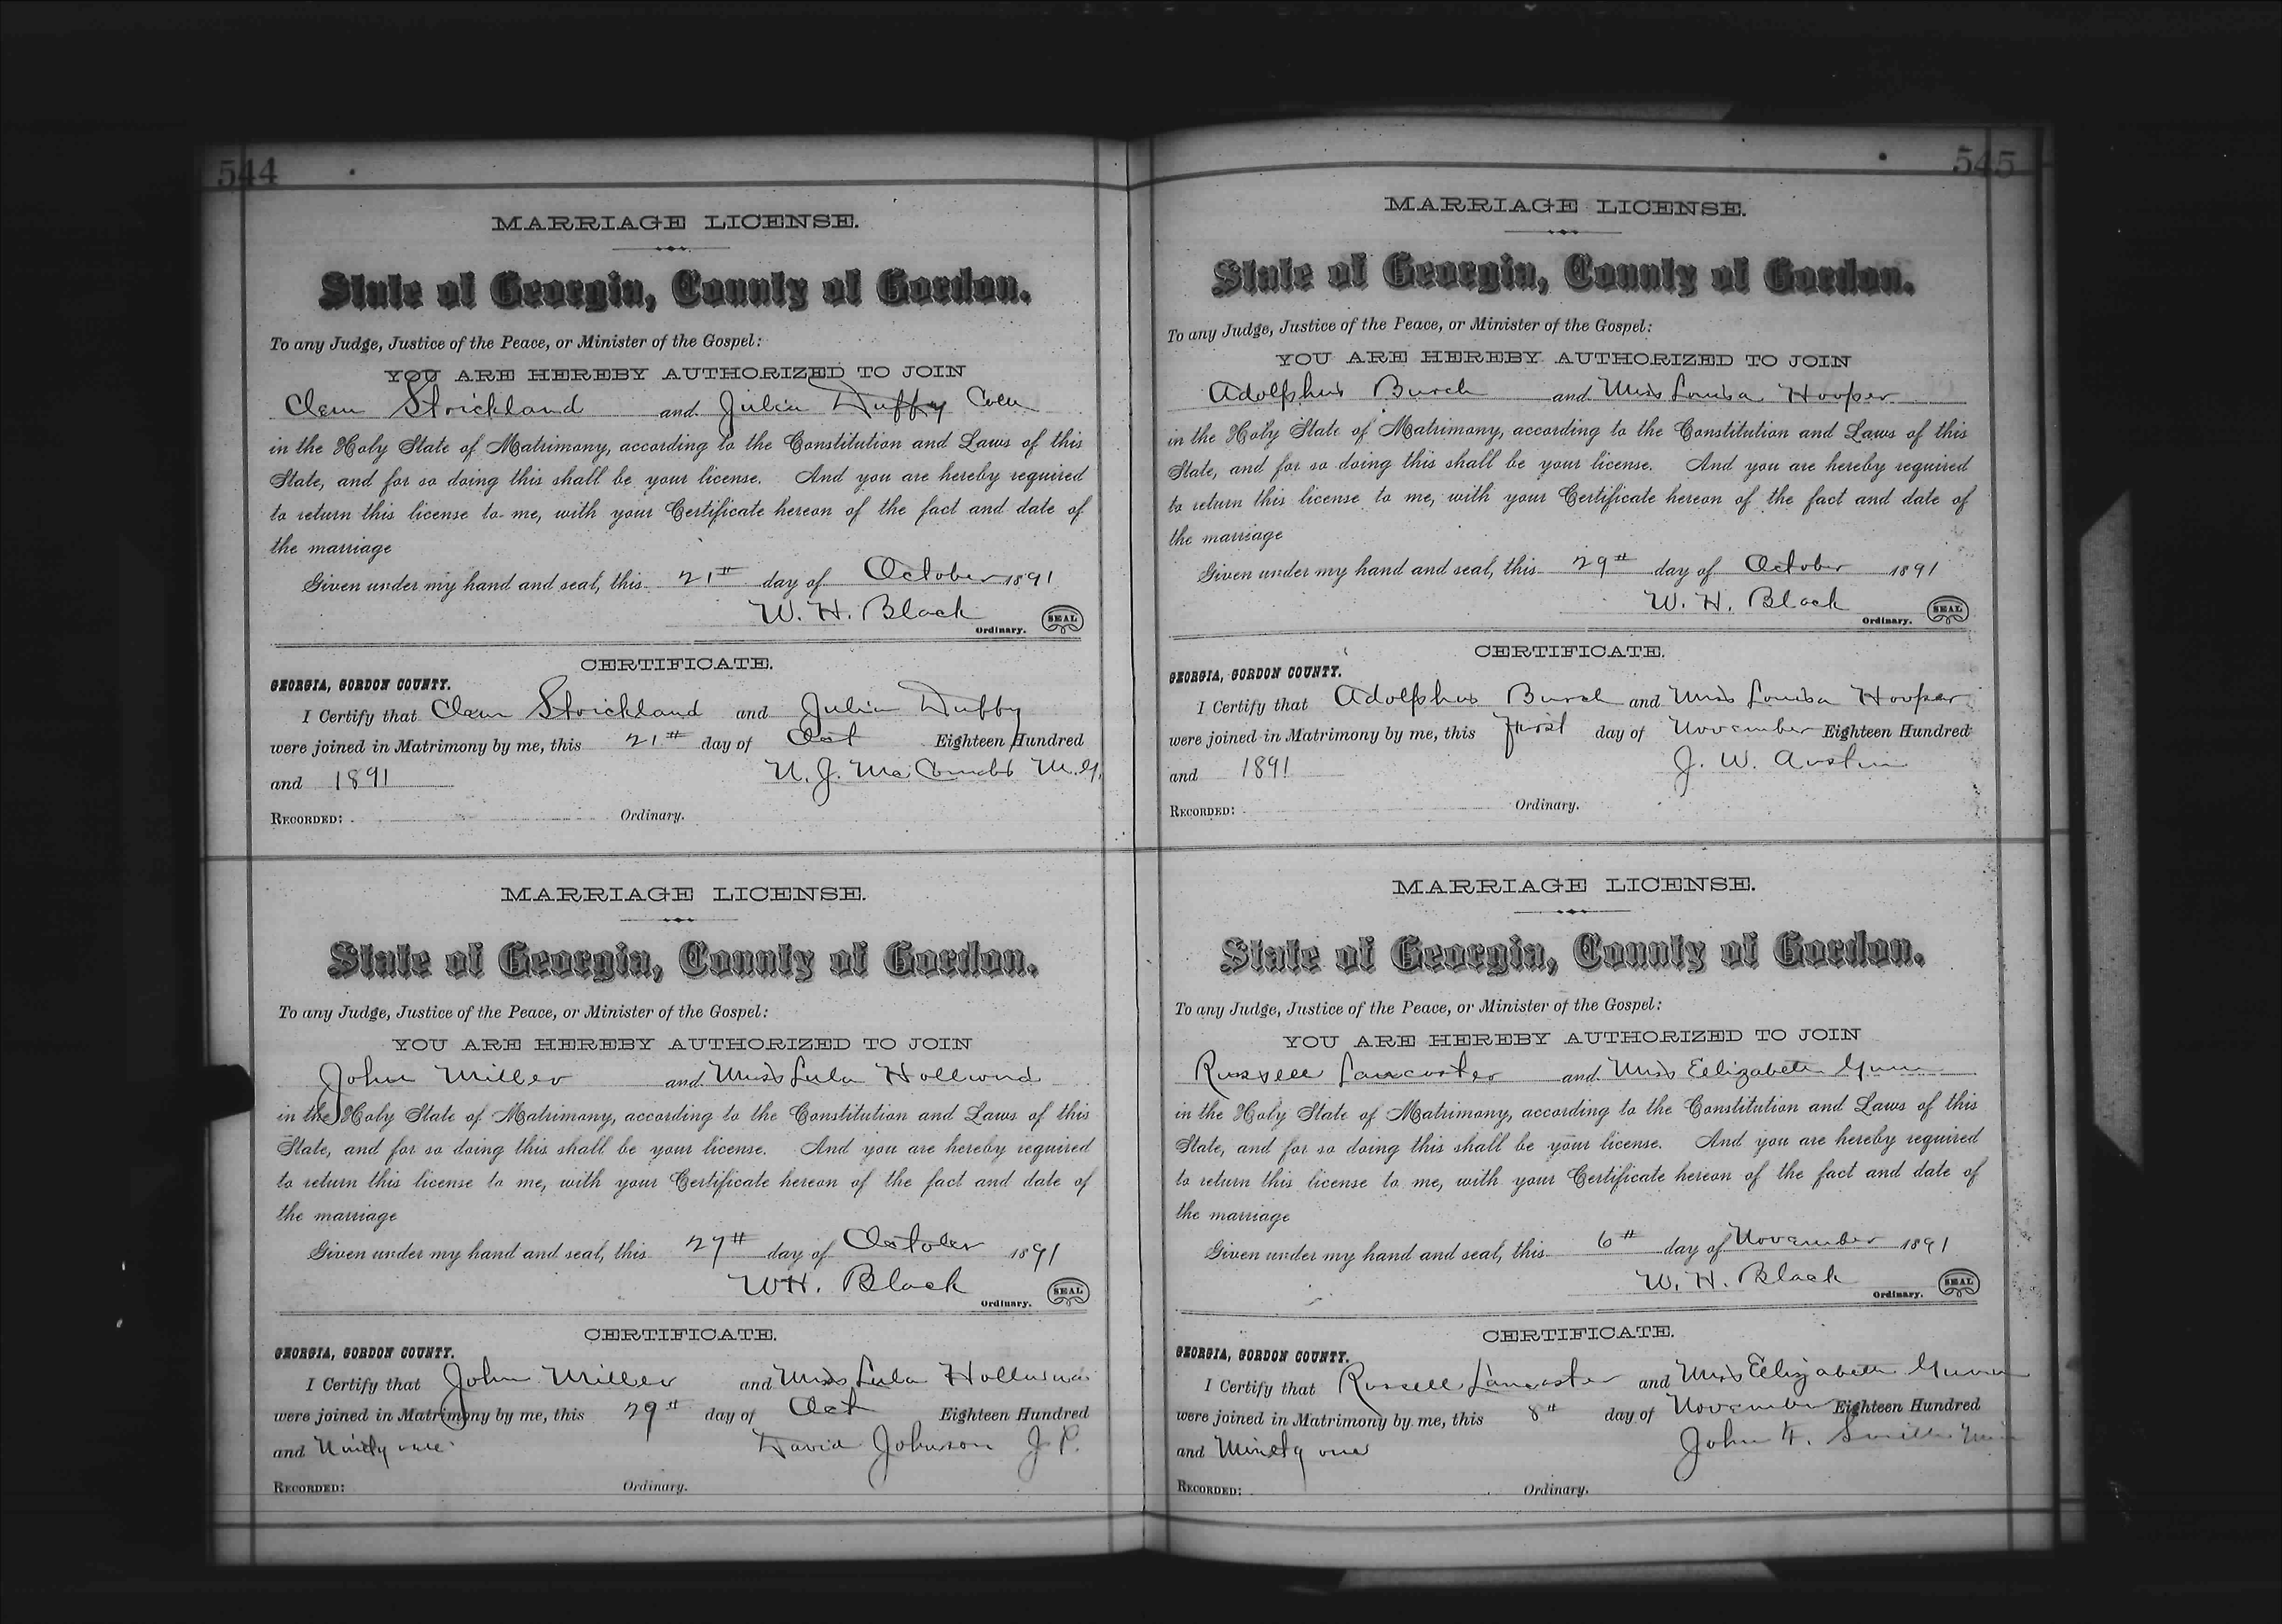 544
MARRIAGE LICENSE.
State of Georgia, County of Gordon.
To any Judge, Justice of the Peace, or Minister of the Gospel:
YOU ARE HEREBY AUTHORIZED TO JOIN
Clem Strickland and Julia Duffy
in the Holy State of Matrimony, according to the Constitution and Laws of this
State, and for so doing this shall be your license. And you are hereby required
to return this license to me, with your Certificate hereon of the fact and date of
the marriage
Given under my hand and seal, this 21st day of October 1891
W. H. Black
Ordinary. SEAL
CERTIFICATE.
GEORGIA, GORDON COUNTY.
I Certify that Clem Strickland and Julia Duffy
were joined in Matrimony by me, this 21st day of Oct Eighteen Hundred
and 1891 N. J. McCombs M.G.
RECORDED: Ordinary.
MARRIAGE LICENSE.
State of Georgia, County of Gordon.
To any Judge, Justice of the Peace, or Minister of the Gospel:
YOU ARE HEREBY AUTHORIZED TO JOIN
John Miller and Miss Lula
in the Holy State of Matrimony, according to the Constitution and Laws of this
State, and for so doing this shall be your license. And you are hereby required
to return this license to me, with your Certificate hereon of the fact and date of
the marriage
Given under my hand and seal, this 27th day of October 1891
WH. Black
Ordinary. SEAL
CERTIFICATE.
GEORGIA, GORDON COUNTY.
I Certify that John Miller and Miss Lula
were joined in Matrimony by me, this 29th day of Oct Eighteen Hundred
and Ninety one David Johnson J. P.
RECORDED: Ordinary.
545
MARRIAGE LICENSE.
State of Georgia, County of Gordon.
To any Judge, Justice of the Peace, or Minister of the Gospel:
YOU ARE HEREBY AUTHORIZED TO JOIN
Adolphus Burch and Miss Louisa Hooper
in the Holy State of Matrimony, according to the Constitution and Laws of this
State, and for so doing this shall be your license. And you are hereby required
to return this license to me, with your Certificate hereon of the fact and date of
the marriage
Given under my hand and seal, this 29th day of October 1891
W. H. Black
Ordinary. SEAL
CERTIFICATE.
GEORGIA, GORDON COUNTY.
I Certify that Adolphus Burch and Miss Louisa Hooper
were joined in Matrimony by me, this First day of November Eighteen Hundred
and 1891 J. W. Austin
RECORDED: Ordinary.
MARRIAGE LICENSE.
State of Georgia, County of Gordon.
To any Judge, Justice of the Peace, or Minister of the Gospel:
YOU ARE HEREBY AUTHORIZED TO JOIN
Russell Lancaster and Miss Ellizabeth Gunn
in the Holy State of Matrimony, according to the Constitution and Laws of this
State, and for so doing this shall be your license. And you are hereby required
to return this license to me, with your Certificate hereon of the fact and date of
the marriage
Given under my hand and seal, this 6th day of November 1891
W. H. Black
Ordinary. SEAL
CERTIFICATE.
GEORGIA, GORDON COUNTY.
I Certify that Russell Lancaster and Miss Ellizabeth Gunn
were joined in Matrimony by me, this 8th day of November Eighteen Hundred
and Ninety one John F. Smith
RECORDED: Ordinary.